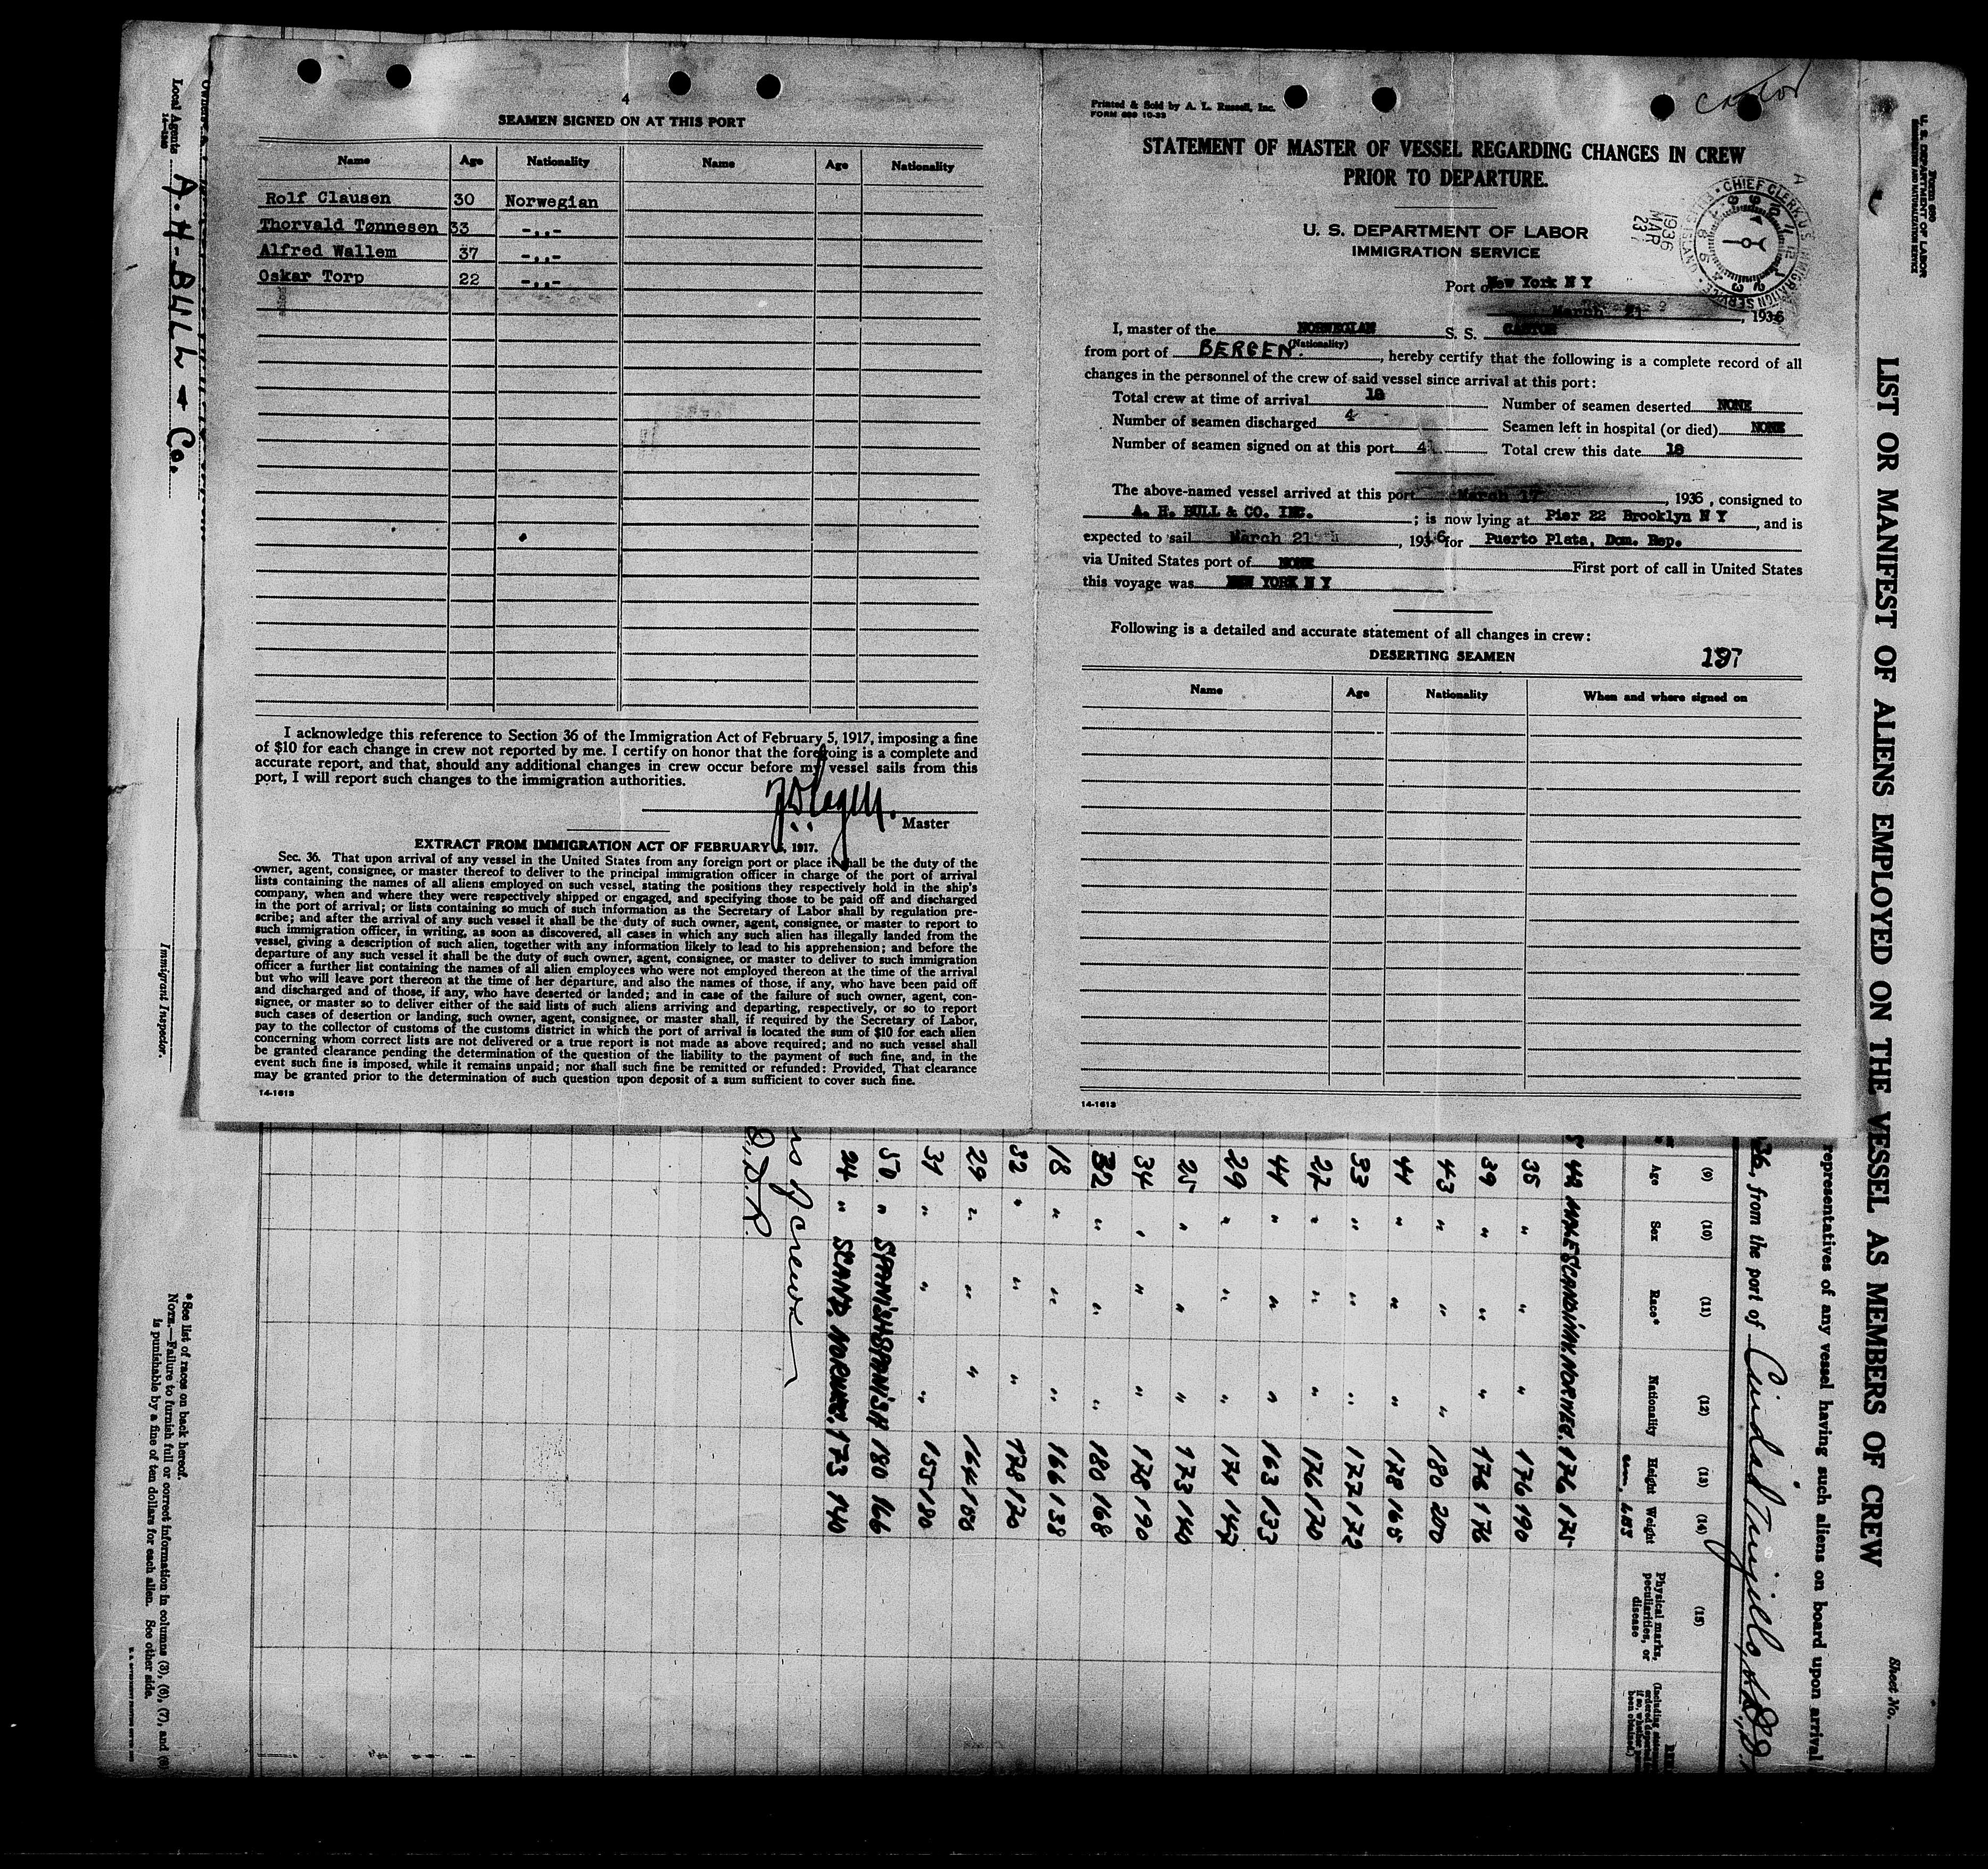 4
SEAMEN SIGNED ON AT THIS PORT
Name Age Nationality Name Age Nationality
Rolf Clausen 30 Norwegian
Thorvald Tønnesen 33 -,,-
Alfred Wallem 37 -,,-
Oskar Torp 22 -,,-
I acknowledge this reference to Section 36 of the Immigration Act of February 5, 1917, imposing a fine
of $10 for each change in crew not reported by me. I certify on honor that the foregoing is a complete and
accurate report, and that, should any additional changes in crew occur before my vessel sails from this
port, I will report such changes to the immigration authorities.
Master
EXTRACT FROM IMMIGRATION ACT OF FEBRUARY 5, 1917.
Sec. 36. That upon arrival of any vessel in the United States from any foreign port or place it shall be the duty of the
owner, agent, consignee, or master thereof to deliver to the principal immigration officer in charge of the port of arrival
lists containing the names of all aliens employed on such vessel, stating the positions they respectively hold in the ship's
company, when and where they were respectively shipped or engaged, and specifying those to be paid off and discharged
in the port of arrival; or lists containing so much of such information as the Secretary of Labor shall by regulation pre-
scribe; and after the arrival of any such vessel it shall be the duty of such owner, agent, consignee, or master to report to
such immigration officer, in writing, as soon as discovered, all cases in which any such alien has illegally landed from the
vessel, giving a description of such alien, together with any information likely to lead to his apprehension; and before the
departure of any such vessel it shall be the duty of such owner, agent, consignee, or master to deliver to such immigration
officer a further list containing the names of all alien employees who were not employed thereon at the time of the arrival
but who will leave port thereon at the time of her departure, and also the names of those, if any, who have been paid off
and discharged and of those, if any, who have deserted or landed; and in case of the failure of such owner, agent, con-
signee, or master so to deliver either of the said lists of such aliens arriving and departing, respectively, or so to report
such cases of desertion or landing, such owner, agent, consignee, or master shall, if required by the Secretary of Labor,
pay to the collector of customs of the customs district in which the port of arrival is located the sum of $10 for each alien
concerning whom correct lists are not delivered or a true report is not made as above required; and no such vessel shall
be granted clearance pending the determination of the question of the liability to the payment of such fine, and, in the
event such fine is imposed, while it remains unpaid; nor shall such fine be remitted or refunded: Provided, That clearance
may be granted prior to the determination of such question upon deposit of a sum sufficient to cover such fine.
14-1613
Printed & Sold by A. L. Russell, Inc.
FORM 689 10-33
Castor
STATEMENT OF MASTER OF VESSEL REGARDING CHANGES IN CREW
PRIOR TO DEPARTURE.
U. S. DEPARTMENT OF LABOR
IMMIGRATION SERVICE
1936
MAR
23
Port of New York N Y
March 21, 1936
I, master of the NORWEGIAN S. S. CASTOR
(Nationality)
from port of BERGEN., hereby certify that the following is a complete record of all
changes in the personnel of the crew of said vessel since arrival at this port:
Total crew at time of arrival 18 Number of seamen deserted NONE
Number of seamen discharged 4 Seamen left in hospital (or died) NONE
Number of seamen signed on at this port 4 Total crew this date 18
The above-named vessel arrived at this port March 17, 1936, consigned to
A. H. BULL & CO. INC.; is now lying at Pier 22 Brooklyn N Y, and is
expected to sail March 21, 1936 for Puerto Plata, Dom. Rep.
via United States port of NONE First port of call in United States
this voyage was NEW YORK N Y
Following is a detailed and accurate statement of all changes in crew:
DESERTING SEAMEN 197
Name Age Nationality When and where signed on
14-1613
Local Agents A.H. BULL & Co.
Immigrant Inspector.
*See list of races on back hereof.
NOTE.—Failure to furnish full or correct information in columns (3), (6), (7), and (8)
is punishable by a fine of ten dollars for each alien. See other side.
Form 689
U. S. DEPARTMENT OF LABOR
IMMIGRATION AND NATURALIZATION SERVICE
LIST OR MANIFEST OF ALIENS EMPLOYED ON THE VESSEL AS MEMBERS OF CREW
Sheet No.
representatives of any vessel having such aliens on board upon arrival
36, from the port of Ciudad Trujillo,
(9) (10) (11) (12) (13) (14) (15)
Age Sex Race* Nationality Height Weight Physical marks, peculiarities, or disease
cm. LBS
42 MALE SCANDINAV. NORWEG. 176 175
35 " " " 176 190
39 " " " 176 176
43 " " " 180 200
44 " " " 178 165
33 " " " 177 172
27 " " " 176 170
44 " " " 163 133
29 " " " 171 147
25 " " " 173 140
34 " " " 178 190
32 " " " 180 168
18 " " " 166 138
32 " " " 178 170
29 " " " 164 150
31 " " " 155 130
50 " SPANISH SPANISH 180 166
24 " SCAND. NORWAY. 173 140
of crews